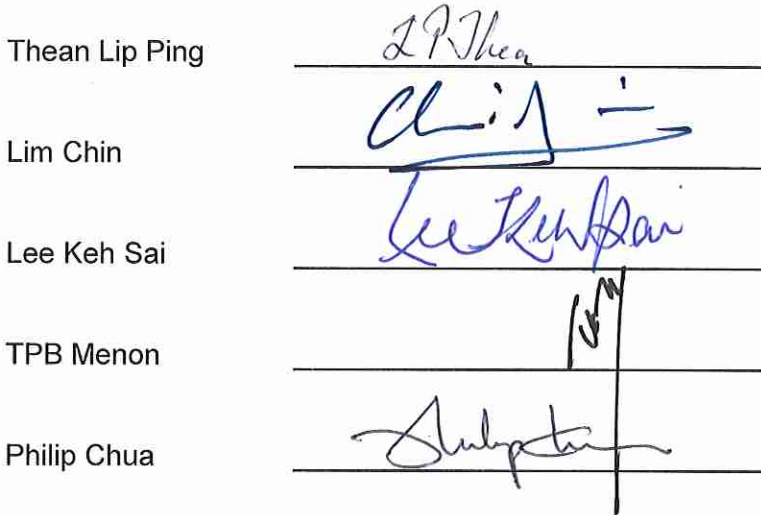 Thean Lip Ping
L P Thean
Lim Chin
Lee Keh Sai
Lee Keh Sai
TPB Menon
Philip Chua